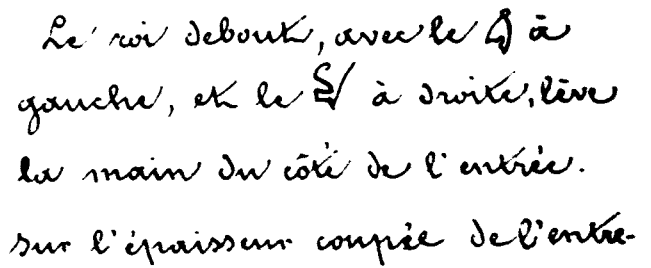 Le roi debout, avec le à
gauche, et le à droite, lève
la main du côté de l'entrée.
sur l'épaisseur coupée de l'entre-